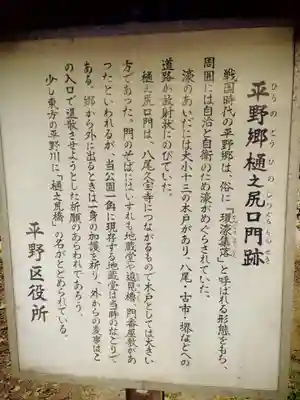 平野郷樋之尻口門跡
ひらのごうひのしりぐちもんせき
戦国時代の平野郷は、俗に「環濠集落」と呼ばれる形態をもち、
周囲には自治と自衛のため濠がめぐらされていた。
濠のあいだには大小十三の木戸があり、八尾・古市・堺などへの
道路が放射状にのびていた。
樋之尻口門は、八尾久宝寺につながるもので木戸としては大きい
方であった。門のそばにはいずれも地蔵堂や遠見櫓、門番屋敷があ
ったといわれるが、当公園一角に現存する地蔵堂は当時のなごりで
ある。郷から外に出るときは一身の加護を祈り、外からの災事はこ
の入口で退散させようとした祈願のあらわれであろう。
少し東方の平野川に「樋之尻橋」の名がとどめられている。
平野区役所